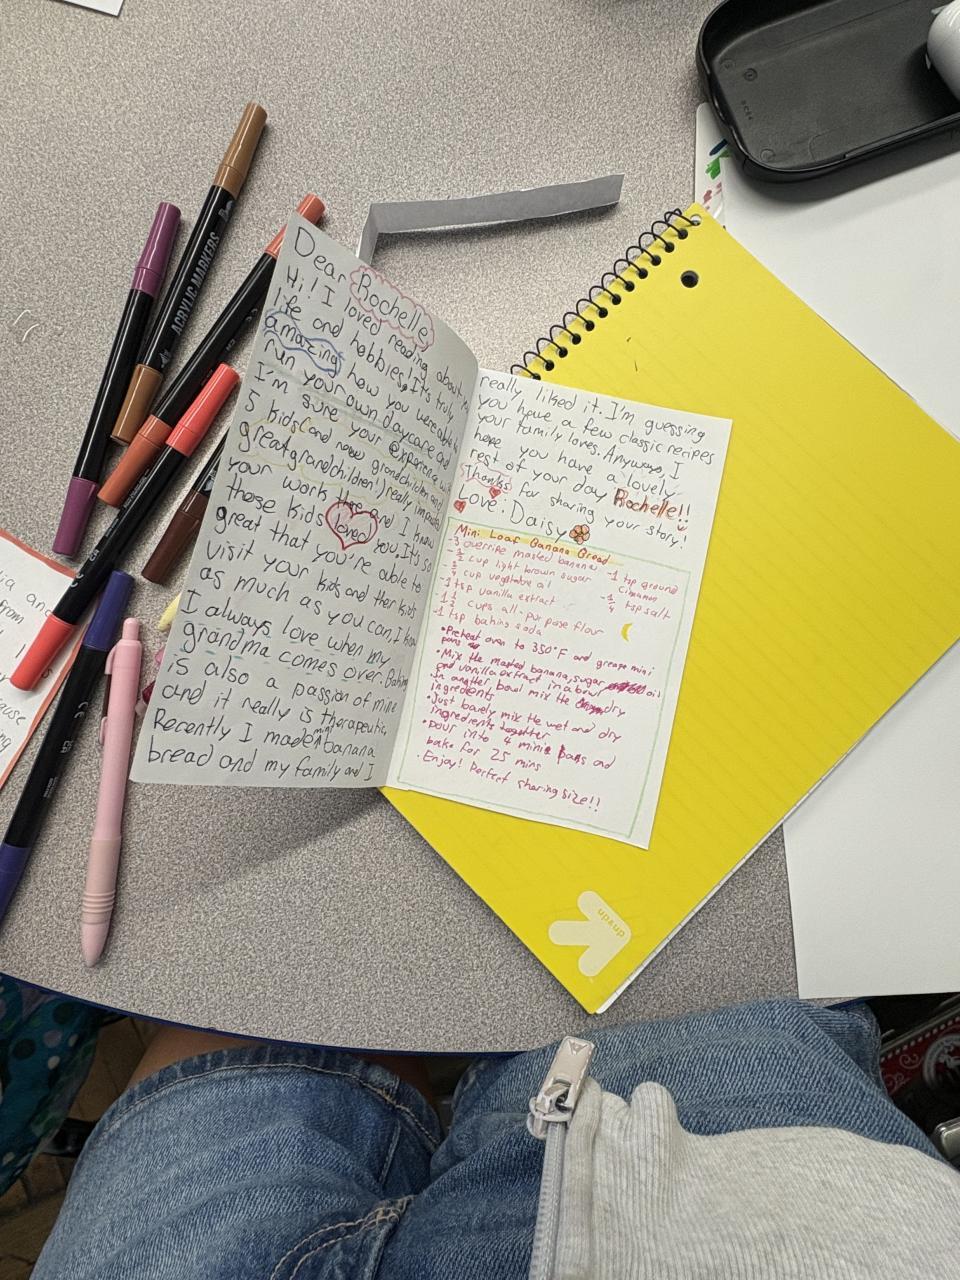 Dear Rochelle,
Hi! I loved reading about
life and hobbies! It's truly
amazing how you were able to
run your own daycare and
I'm sure your experience w
5 kids (and now grandchildren and
great grandchildren!) really
your work and I know
those kids loved you. It's so
great that you're able to
visit your kids and their kids
as much as you can, I know
I always love when my
grandma comes over. Baking
is also a passion of mine
and it really is therapeutic.
Recently I made mini banana
bread and my family and I
really liked it. I'm guessing
you have a few classic recipes
your family loves. Anyways, I
hope you have a lovely
rest of your day Rochelle!!
Thanks for sharing your story!
Love: Daisy
Mini Loaf Banana Bread
-3 overripe mashed banana
- cup light brown sugar
- cup vegetable oil
-1 tsp vanilla extract
-1 1/2 cups all-purpose flour
-1 tsp baking soda
-1 tsp ground
cinnamon
-1/4 tsp salt
•Preheat oven to 350°F and grease mini
pans
•Mix the mashed banana, sugar oil
and vanilla extract in a bowl
In another bowl mix the dry
ingredients
•Just barely mix the wet and dry
ingredients together
•pour into 4 mini pans and
bake for 25 mins
•Enjoy! Perfect sharing size!!
ACRYLIC MARKERS
up&up
ia and
from
ause
ng